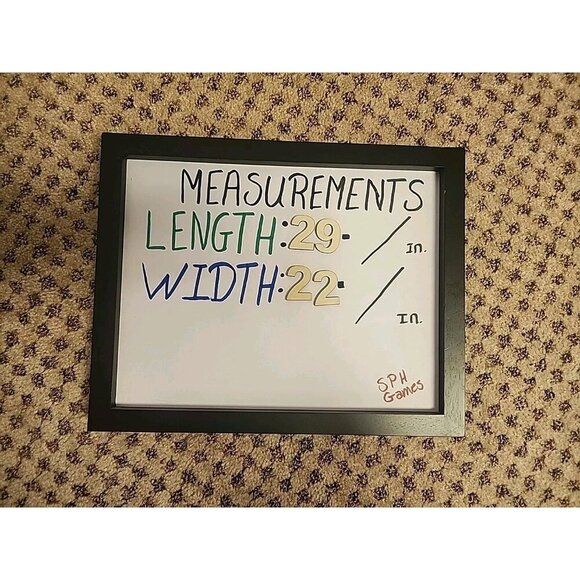 MEASUREMENTS
LENGTH:29- / In.
WIDTH:22- / In.
SPH
Games